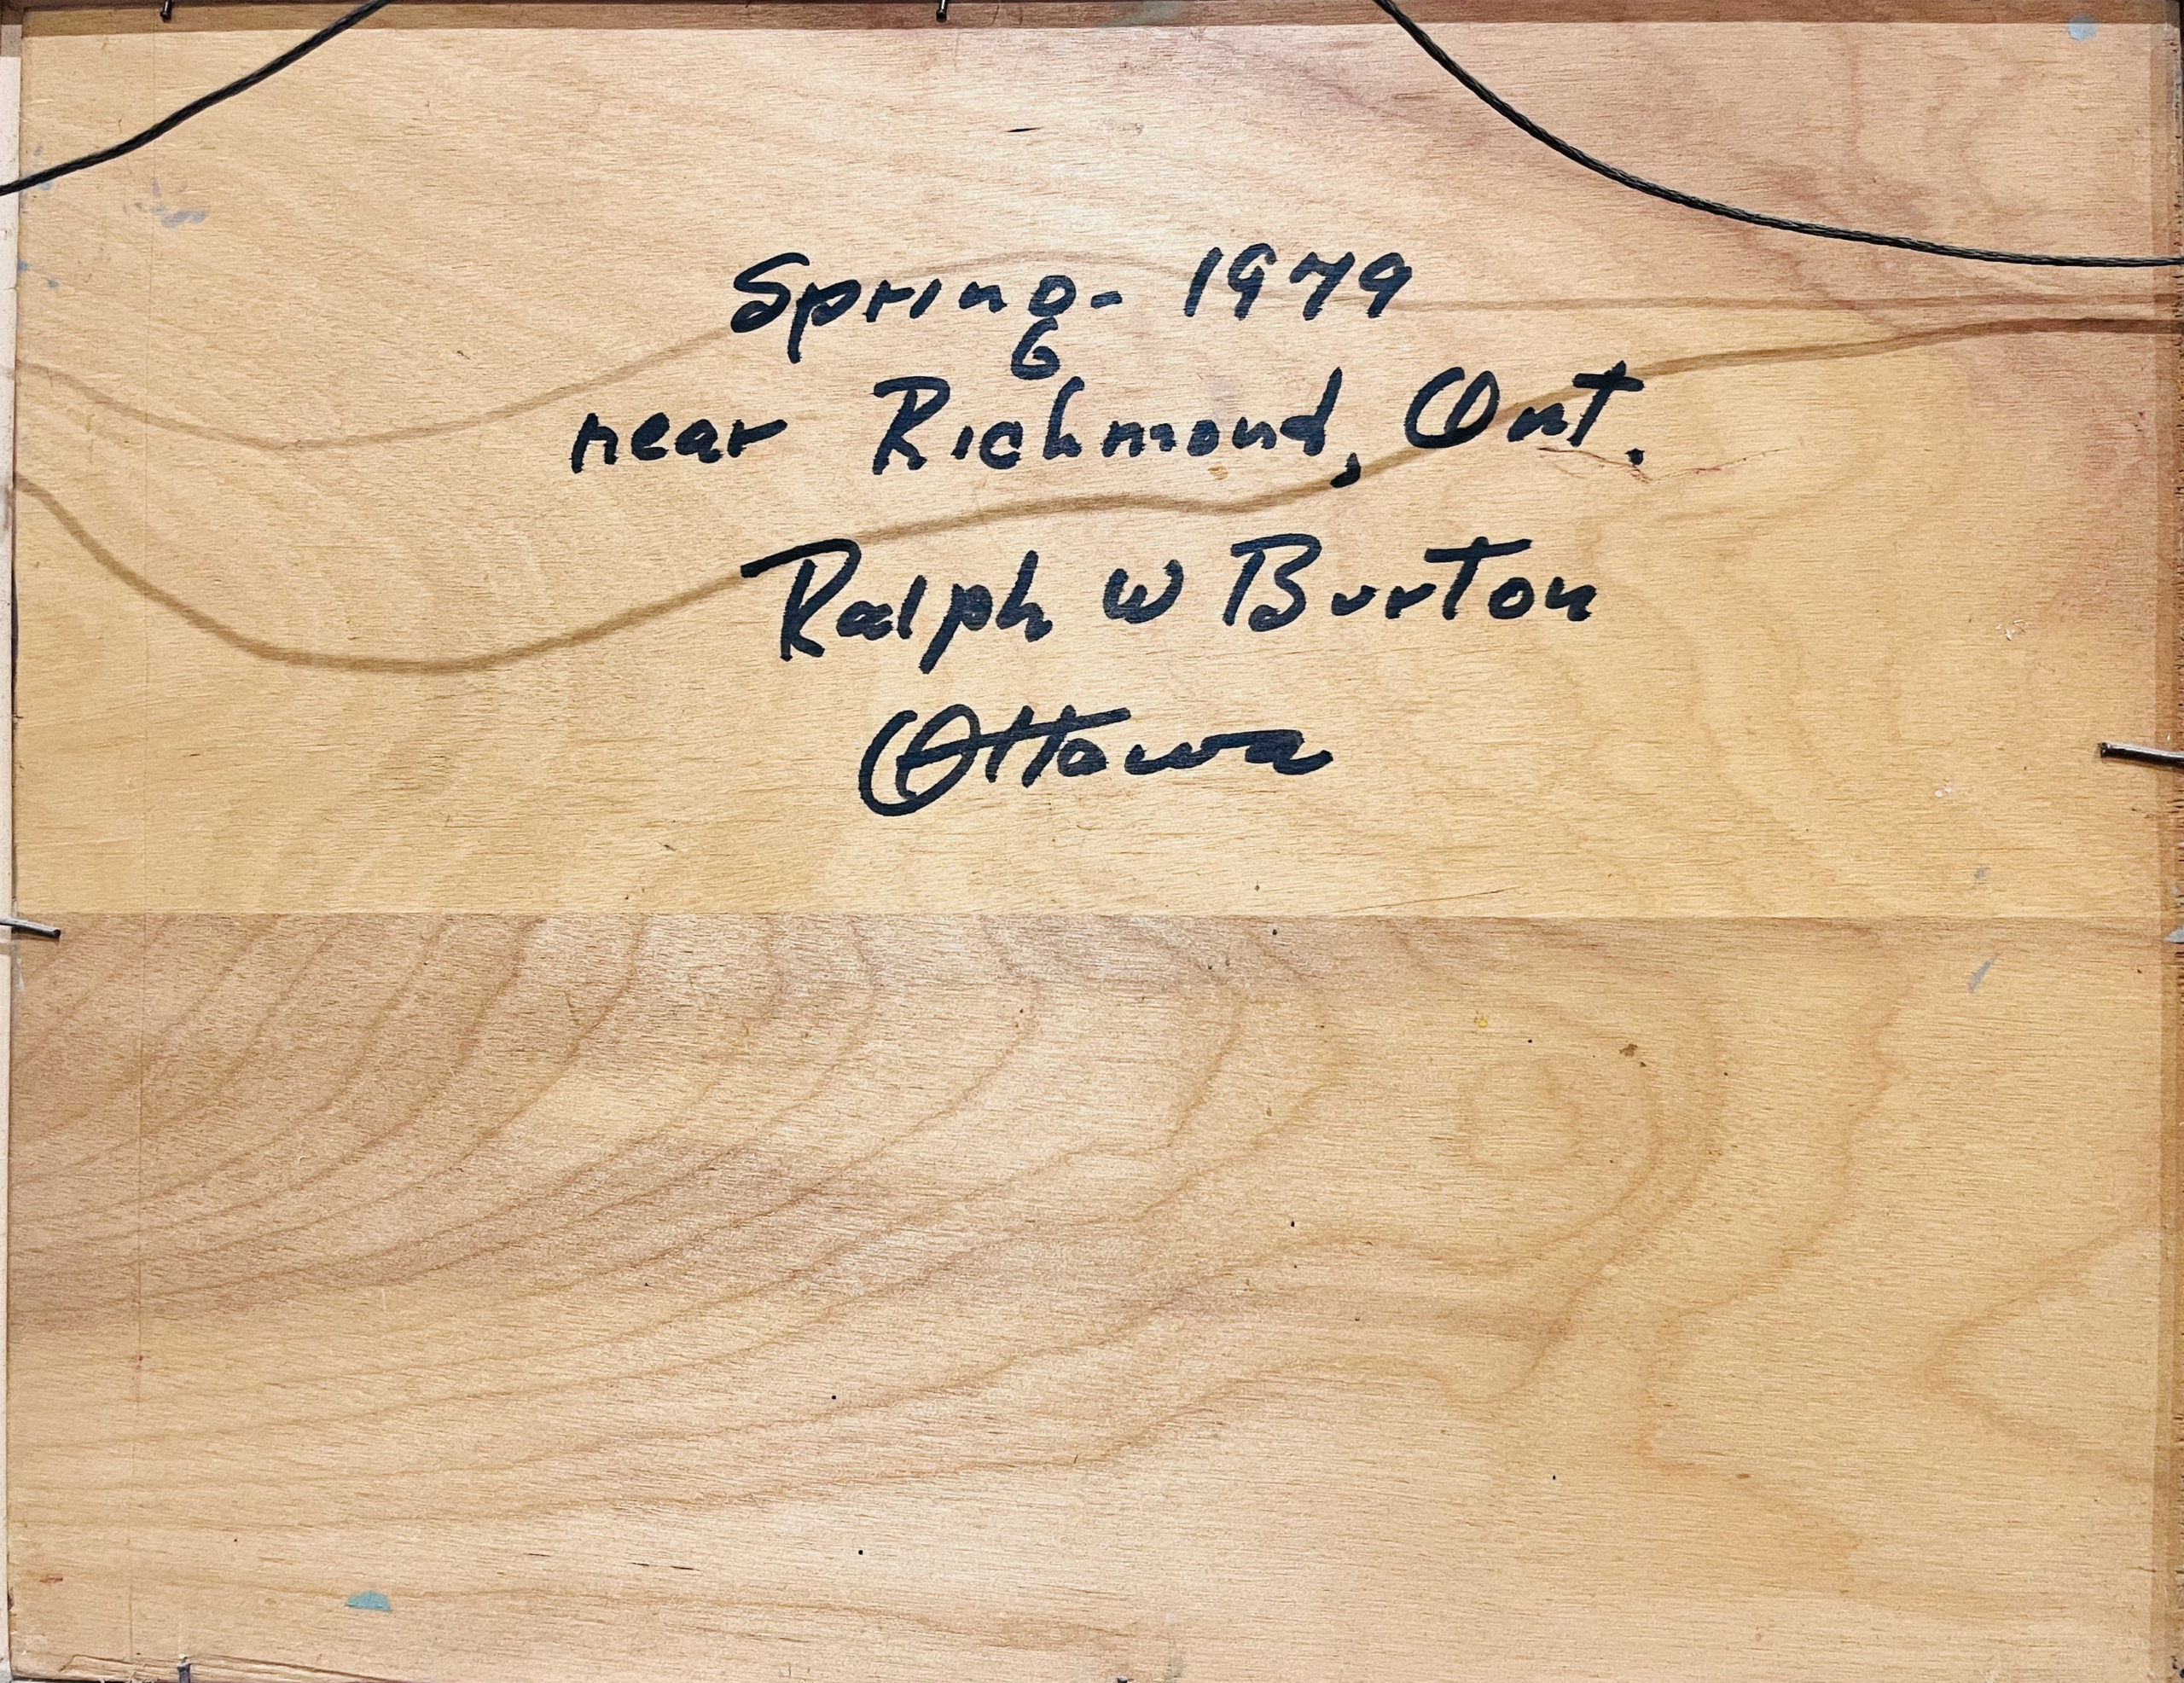 Spring - 1979
near Richmond, Ont.
Ralph W Burton
Ottawa